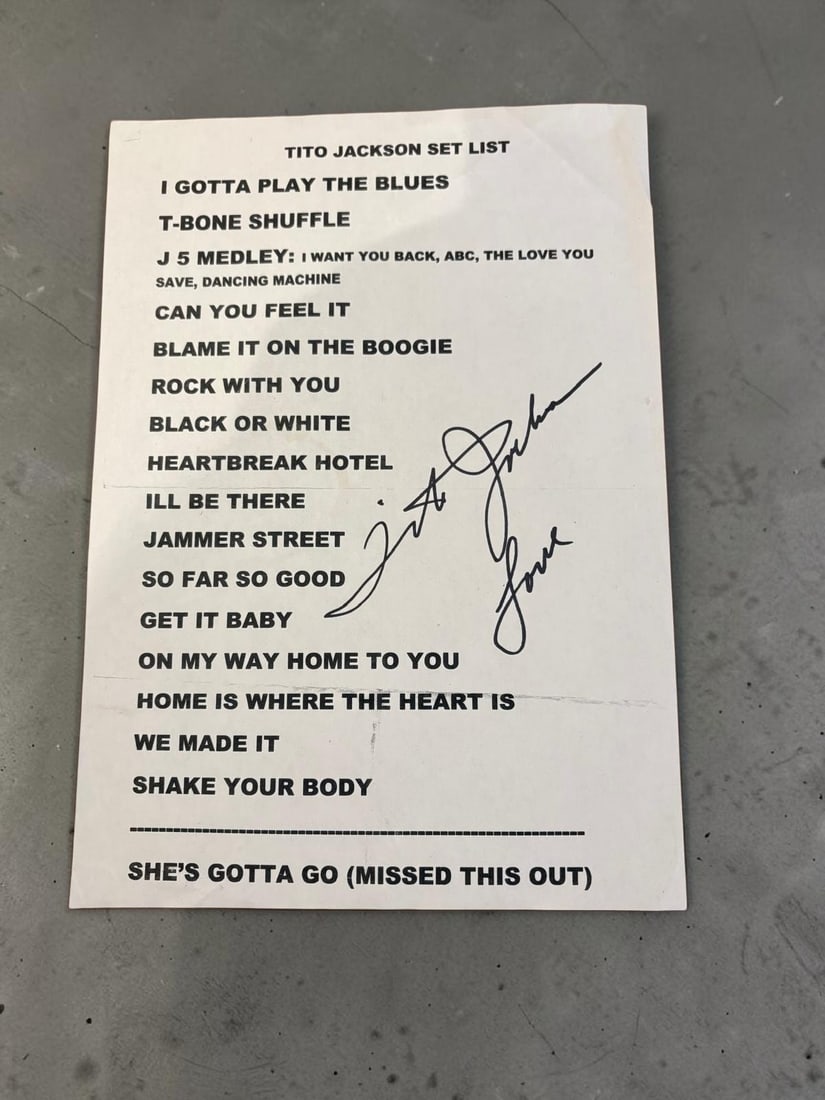 TITO JACKSON SET LIST
I GOTTA PLAY THE BLUES
T-BONE SHUFFLE
J 5 MEDLEY: I WANT YOU BACK, ABC, THE LOVE YOU
SAVE, DANCING MACHINE
CAN YOU FEEL IT
BLAME IT ON THE BOOGIE
ROCK WITH YOU
BLACK OR WHITE
HEARTBREAK HOTEL
ILL BE THERE
JAMMER STREET
SO FAR SO GOOD
GET IT BABY
ON MY WAY HOME TO YOU
HOME IS WHERE THE HEART IS
WE MADE IT
SHAKE YOUR BODY
---------------------------------------------------------------
SHE'S GOTTA GO (MISSED THIS OUT)
Tito Jackson
Love